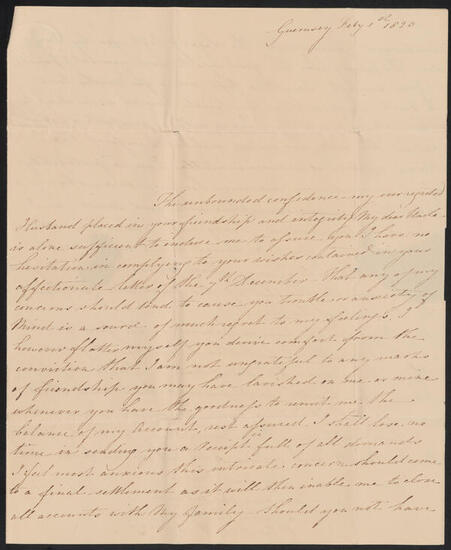 Guernsey Feby 1st 1823
The unbounded confidence my ever regarded
Husband placed in your friendship and integrity My dear Uncle
is alone sufficient to induce me to assure you I have no
hesitation in complying to your wishes contained in your
affectionate letter of the 9th December - That any of my
concerns should tend to cause you trouble or anxiety of
Mind is a source of much regret to my feelings, I
however flatter myself you derive comfort from the
conviction that I am not ungrateful to any marks
of friendship you may have lavished on me or mine
whenever you have the goodness to remit me the
balance of my Account, rest assured I shall lose no
time in sending you a Receipt in full of all demands
I feel most anxious this intricate concern should come
to a final settlement as it will then inable me to close
all accounts with My family - Should you not have